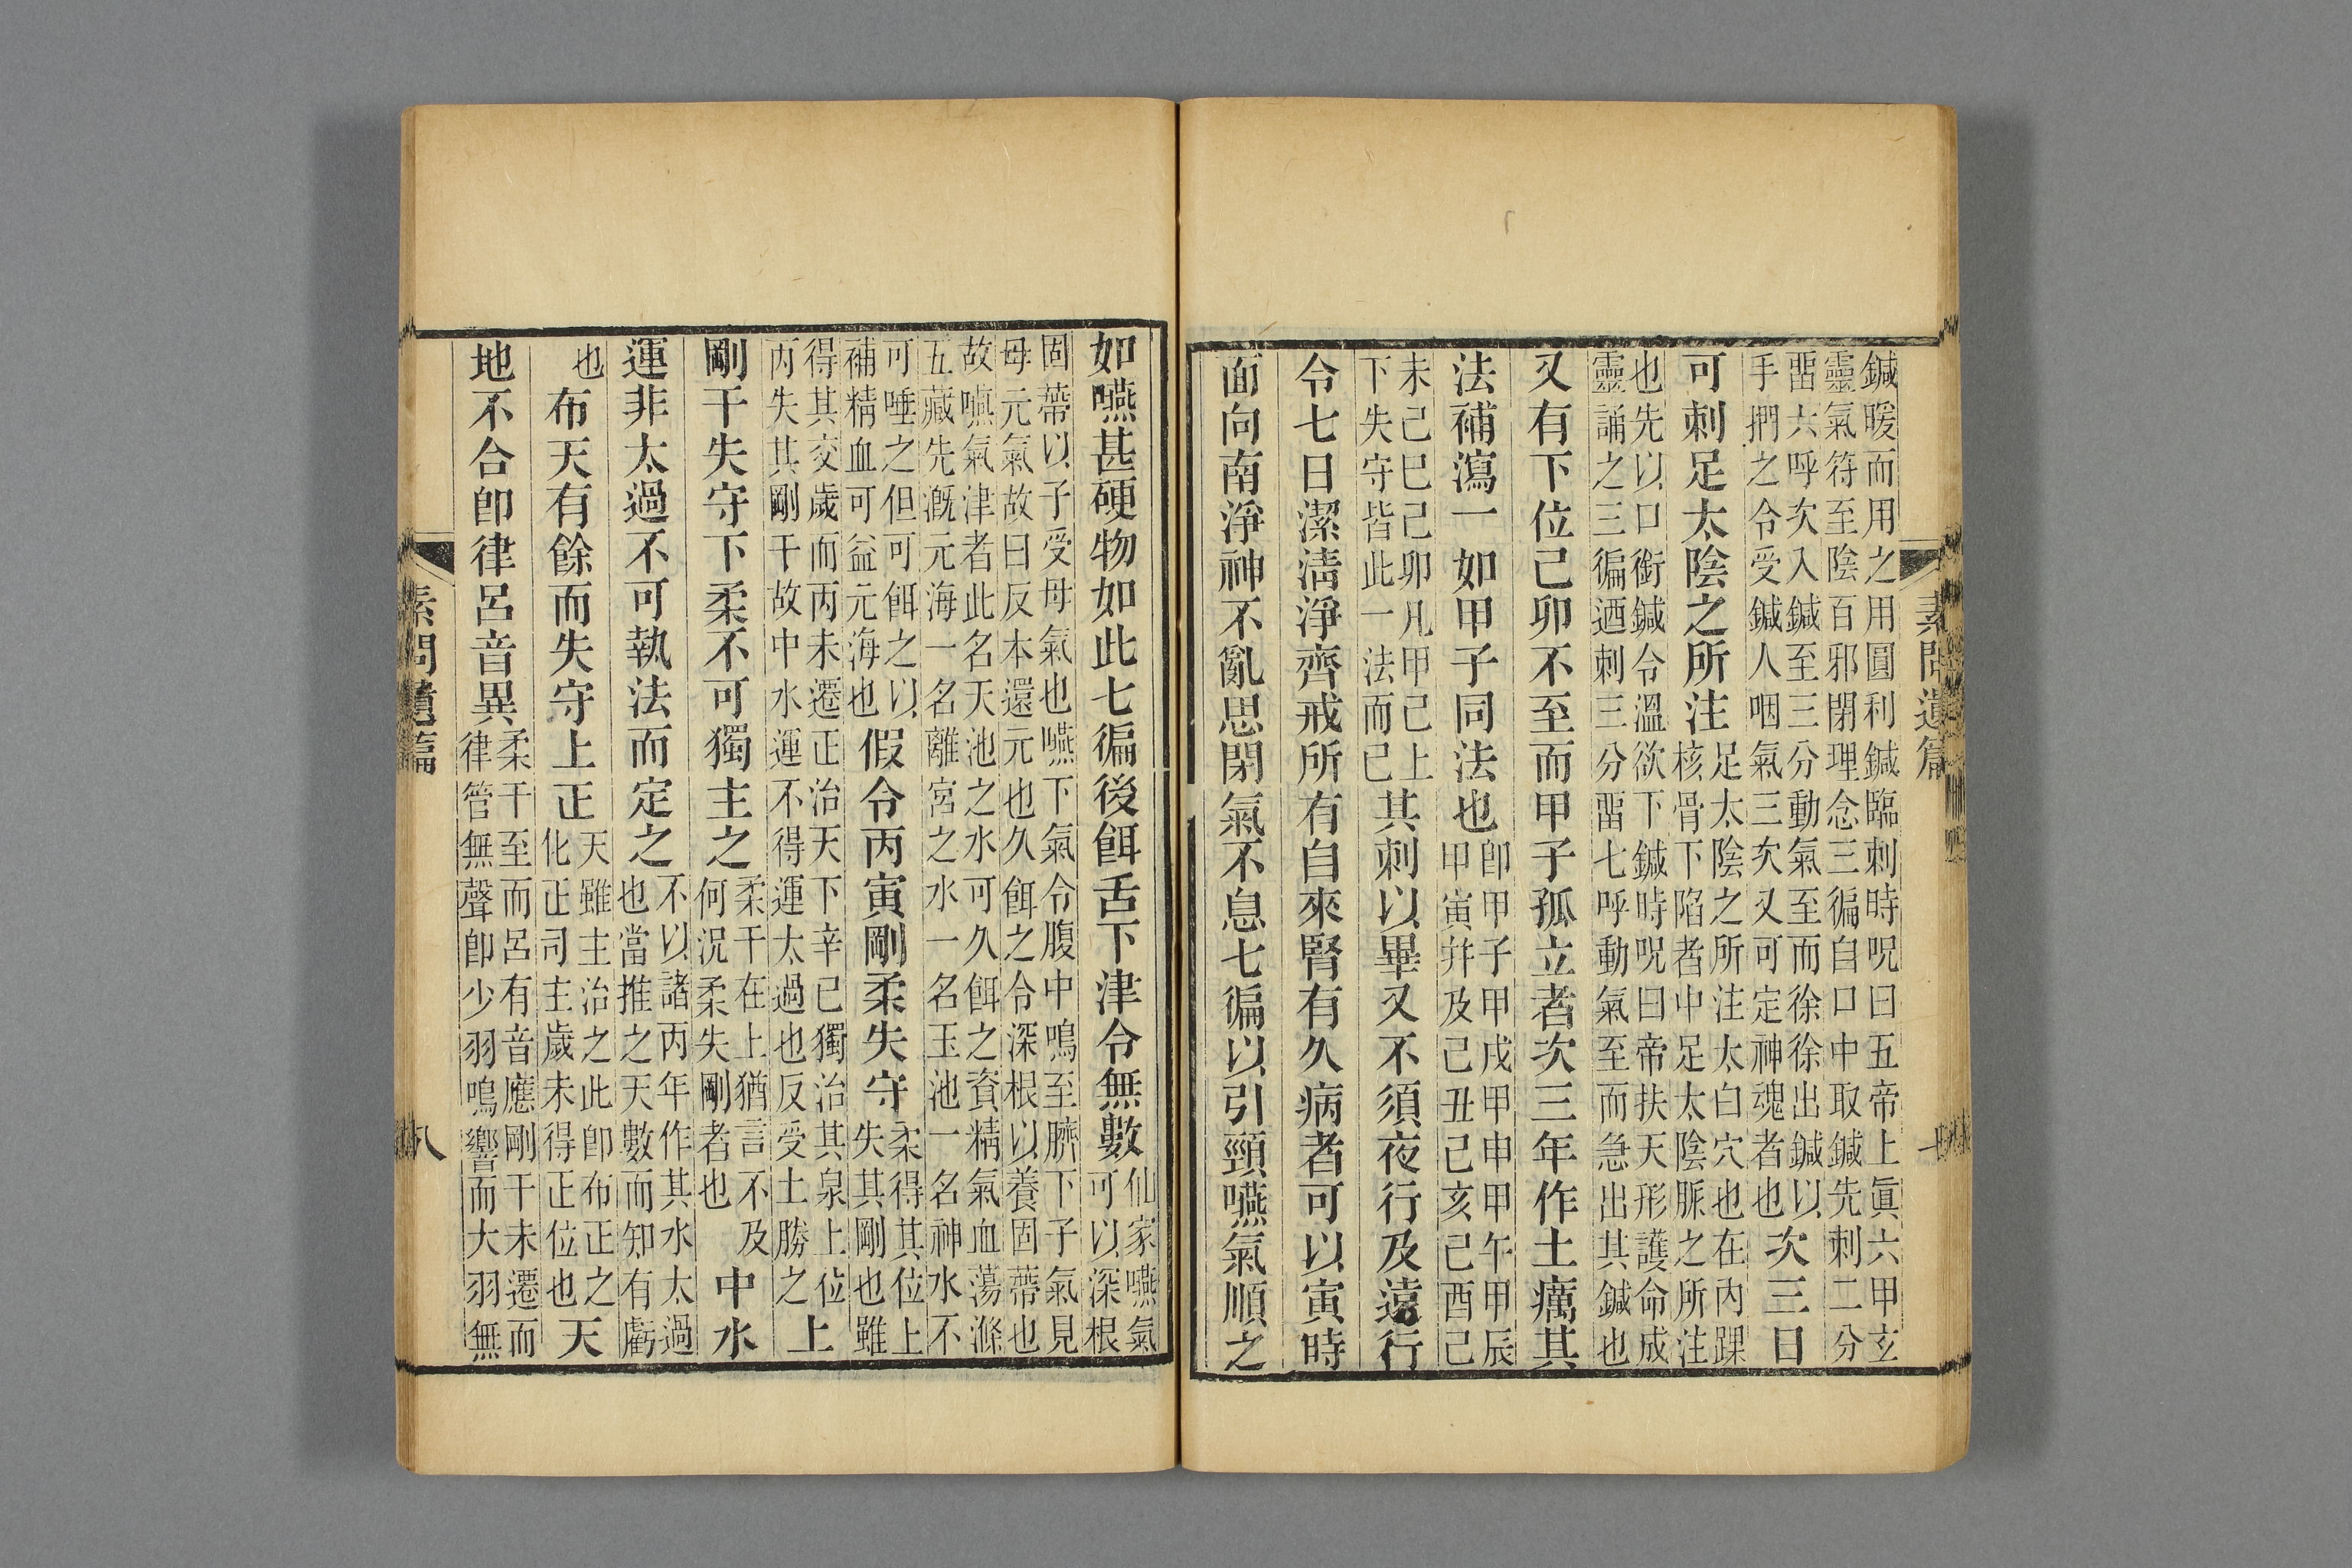 素問遺篇
鍼暖而用之用圓利鍼臨刺時呪曰五帝上眞六甲玄
靈氣符至陰百邪閉理念三徧自口中取鍼先刺二分
㽞六呼次入鍼至三分動氣至而徐徐出鍼以
手捫之令受鍼人咽氣三次又可定神魂者也
次三日
可刺足太陰之所注
足太陰之所注太白穴也在內踝
核骨下陷者中足太陰脈之所注
也先以口銜鍼令溫欲下鍼時呪曰帝扶天形護命成
靈誦之三徧迺刺三分㽞七呼動氣至而急出其鍼也
又有下位己卯不至而甲子孤立者次三年作土癘其
法補瀉一如甲子同法也
卽甲子甲戌甲申甲午甲辰
甲寅幷及己丑己亥己酉己
未己巳己卯凡甲己上
下失守皆此一法而已
其刺以畢又不須夜行及遠行
令七日潔淸淨齊戒所有自來腎有久病者可以寅時
面向南淨神不亂思閉氣不息七徧以引頸嚥氣順之
如嚥甚硬物如此七徧後餌舌下津令無數
仙家嚥氣
可以深根
固蔕以子受母氣也嚥下氣令腹中鳴至臍下子氣見
母元氣故曰反本還元也久餌之令深根以養固蔕也
故嚥氣津者此名天池之水可久餌之資精氣血蕩滌
五藏先漑元海一名離宮之水一名玉池一名神水不
可唾之但可餌之以
補精血可益元海也
假令丙寅剛柔失守
柔得其位上
失其剛也雖
得其交歲而丙未遷正治天下辛巳獨治其泉上位
丙失其剛干故中水運不得運太過也反受土勝之
上
剛干失守下柔不可獨主之
柔干在上猶言不及
何況柔失剛者也
中水
運非太過不可執法而定之
不以諸丙年作其水太過
也當推之天數而知有虧
也
布天有餘而失守上正
天雖主治之此卽布正之
化正司主歲未得正位也
天
地不合卽律呂音異
柔干至而呂有音應剛干未遷而
律管無聲卽少羽鳴響而大羽無
素問遺篇
八